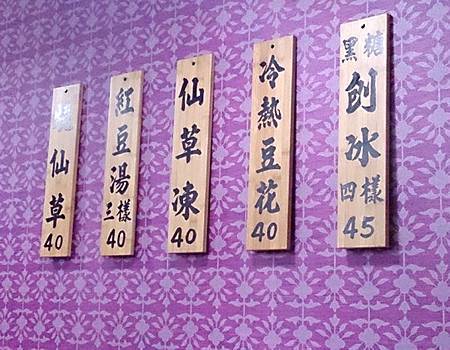 黑糖
刨冰
四樣
45
冷熱豆花
40
仙草凍
40
紅豆湯
三樣
40
仙草
40